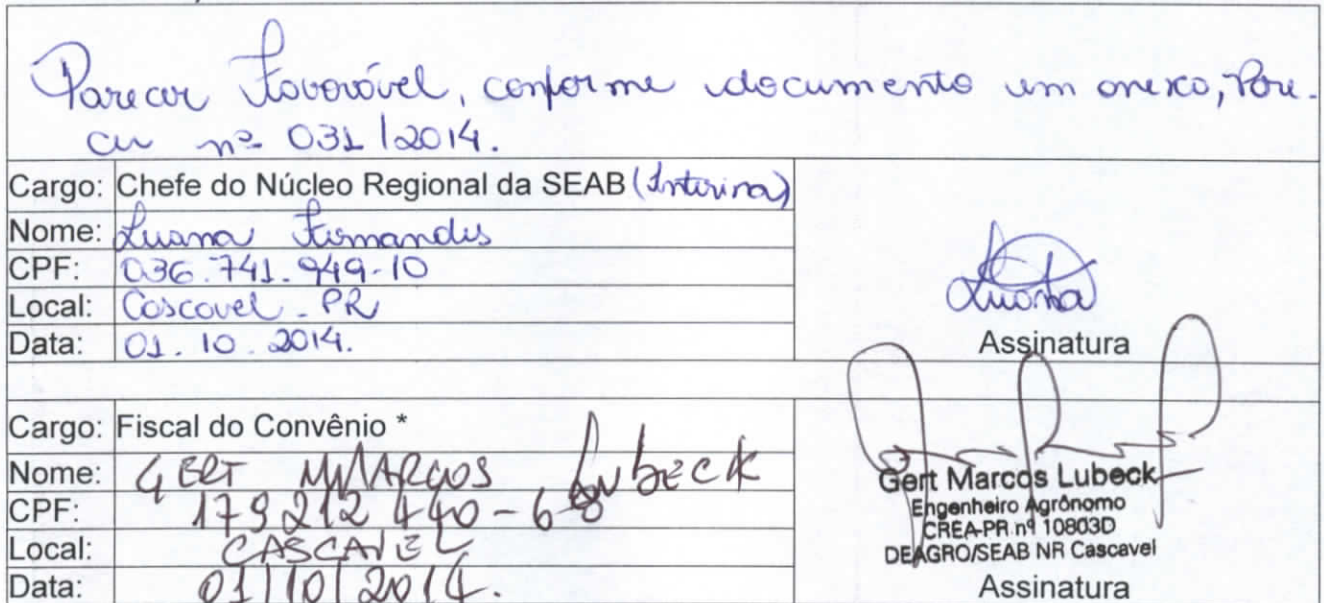 Parecer Favorável, conforme documento em anexo, Pare-
cer nº 031/2014.
Cargo: Chefe do Núcleo Regional da SEAB (Interina)
Nome: Luana Fernandes
CPF: 036.741.949-10
Local: Cascavel - PR
Data: 01.10.2014.
Luana
Assinatura
Cargo: Fiscal do Convênio *
Nome: GERT MARCOS LUBECK
CPF: 179212440-68
Local: CASCAVEL
Data: 01/10/2014.
Gert Marcos Lubeck
Engenheiro Agrônomo
CREA-PR nº 10803D
DEAGRO/SEAB NR Cascavel
Assinatura